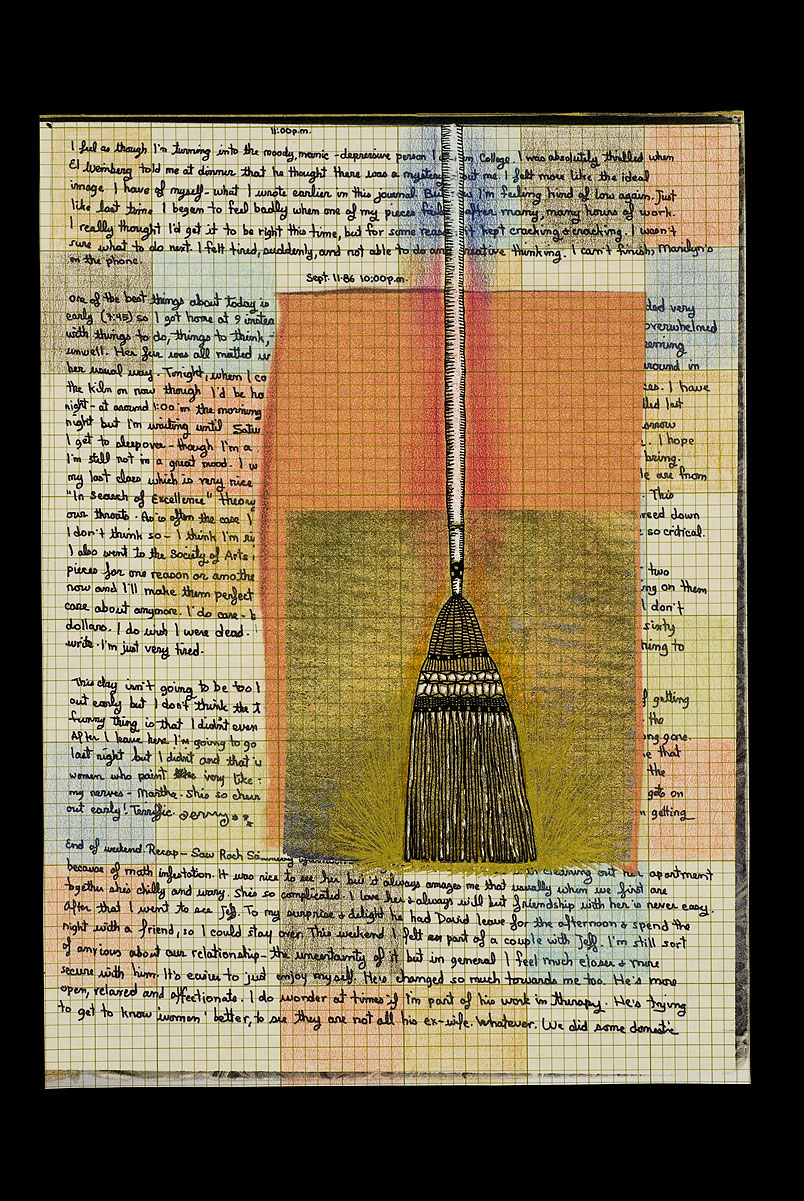 11:00 p.m.
I feel as though I'm turning into the moody, manic-depressive person I in College. I was absolutely thrilled when
El Weinberg told me at dinner that he thought there was a mystery out me. I felt more like the ideal
image I have of myself - what I wrote earlier in this journal. But I'm feeling kind of low again. Just
like last time I began to feel badly when one of my pieces after many, many hours of work.
I really thought I'd get it to be right this time, but for some reas it kept cracking & cracking. I wasn't
sure what to do next. I felt tired, suddenly, and not able to do any creative thinking. I can't finish, Marilyn's
on the phone.
Sept. 11.86 10:00p.m.
One of the best things about today is ded very
early (7:45) so I got home at 9 instea overwhelmed
with things to do, things to think,
unwell. Her fur was all matted w around in
her usual way. Tonight, when I co I have
the kiln on now though I'd be ho lled last
night - at around 1:00 in the morning
night but I'm waiting until Satu . I hope
I get to sleep over - though I'm a bring.
I'm still not in a great mood. I w le are from
my last class which is very nice . This
"In Search of Excellence" theory reed down
our throats. As is often the case I so critical.
I don't think so - I think I'm
I also went to the Society of Arts two
pieces for one reason or anothe ng on them
now and I'll make them perfect I don't
care about anymore. I do care - sixty
dollars. I do wish I were dead. hing to
write. I'm just very tired.
This day isn't going to be too l f getting
out early but I don't think the t the
funny thing is that I didn't even ong gone.
After I leave here I'm going to go e that
last night but I didn't and that's the
women who paint very like gets on
my nerves - Martha. She's so cheer n getting
out early! Terrific
End of weekend. Recap - Saw Roch
because of moth infestation. It was nice to see her but it always amazes me that usually when we first are in cleaning out her apartment
together she's chilly and wary. She's so complicated. I love her & always will but friendship with her is never easy.
After that I went to see Jeff. To my surprise & delight he had David leave for the afternoon & spend the
night with a friend, so I could stay over. This weekend I felt part of a couple with Jeff. I'm still sort
of anxious about our relationship - the uncertainty of it but in general I feel much closer & more
secure with him. It's easier to just enjoy myself. He's changed so much towards me too. He's more
open, relaxed and affectionate. I do wonder at times if I'm part of his work in therapy. He's trying
to get to know 'women' better, to see they are not all his ex-wife. Whatever. We did some domestic